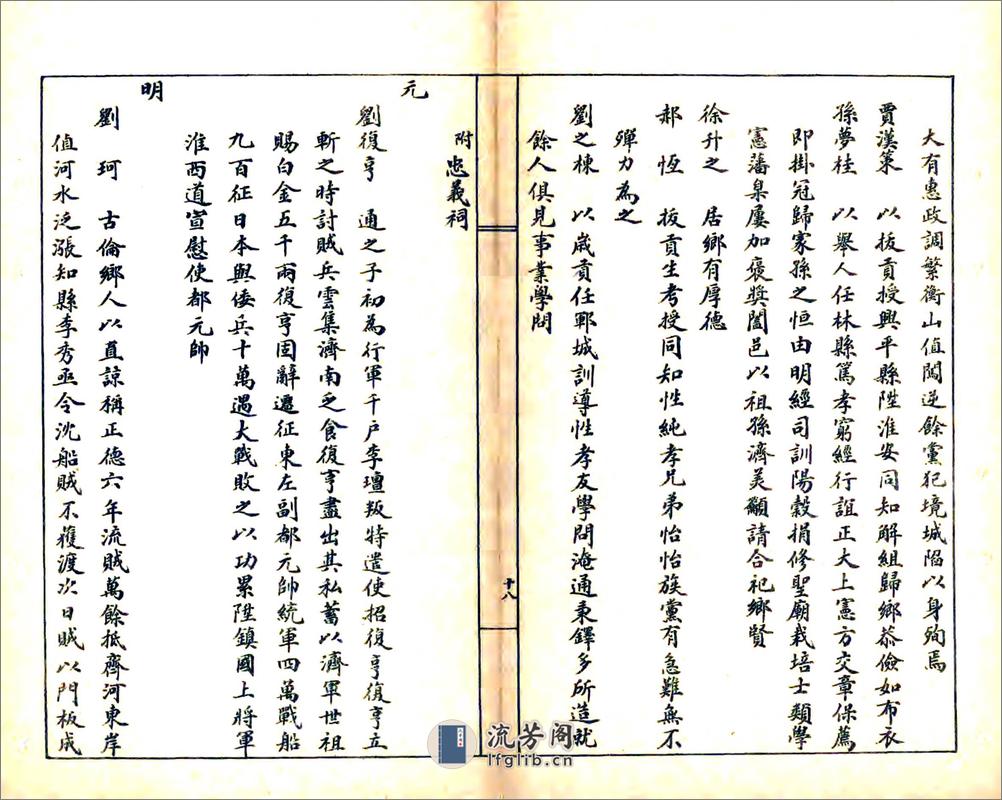 大有惠政調繁衡山值闖逆餘黨犯境城陷以身殉焉
賈漢策　以拔貢授興平縣陞淮安同知解組歸鄉恭儉如布衣
孫夢桂　以舉人任林縣篤孝窮經行誼正大上憲方交章保薦
即掛冠歸家孫之恒由明經司訓陽穀捐修聖廟栽培士類學
憲藩臬屢加褒獎闔邑以祖孫濟美籲請合祀鄉賢
徐升之　居鄉有厚德
郝　恆　拔貢生考授同知性純孝兄弟怡怡族黨有急難無不
殫力為之
劉之棟　以歲貢任鄆城訓導性孝友學問淹通秉鐸多所造就
餘人俱見事業學問
附忠義祠
十八
元
劉復亨　通之子初為行軍千戶李璮叛特遣使招復亨復亨立
斬之時討賊兵雲集濟南乏食復亨盡出其私蓄以濟軍世祖
賜白金五千兩復亨固辭遷征東左副都元帥統軍四萬戰船
九百征日本與倭兵十萬遇大戰敗之以功累陞鎮國上將軍
淮西道宣慰使都元帥
明
劉　珂　古倫鄉人以直諒稱正德六年流賊萬餘抵齊河東岸
值河水泛漲知縣李秀亟令沈船賊不獲渡次日賊以門板成
流芳閣
lfglib.cn